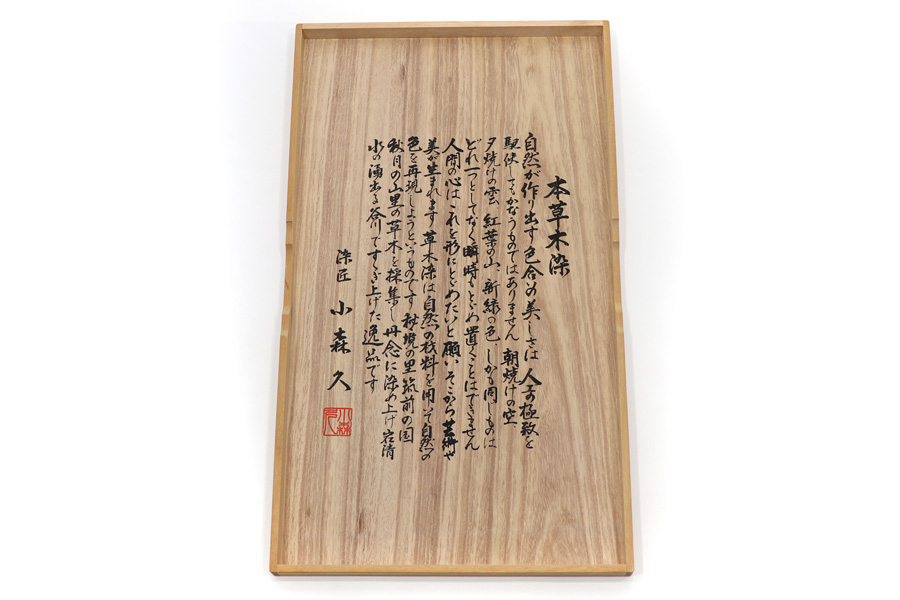 本草木染
自然が作り出す色合の美しさは人工の極致を
駆使してもかなうものではありません 朝焼けの空
夕焼けの雲 紅葉の山、新緑の色 しかも同じものは
どれ一つとしてなく瞬時もとどめ置くことはできません
人間の心はこれを形にとどめたいと願い そこから芸術や
美が生まれます 草木染は自然の材料を用いて自然の
色を再現しようというものです 秘境の里筑前の国
秋月の山里の草木を採集し丹念に染め上げ岩清
水の湧出る谷川ですすぎ上げた逸品です
染匠 小森久
小森久